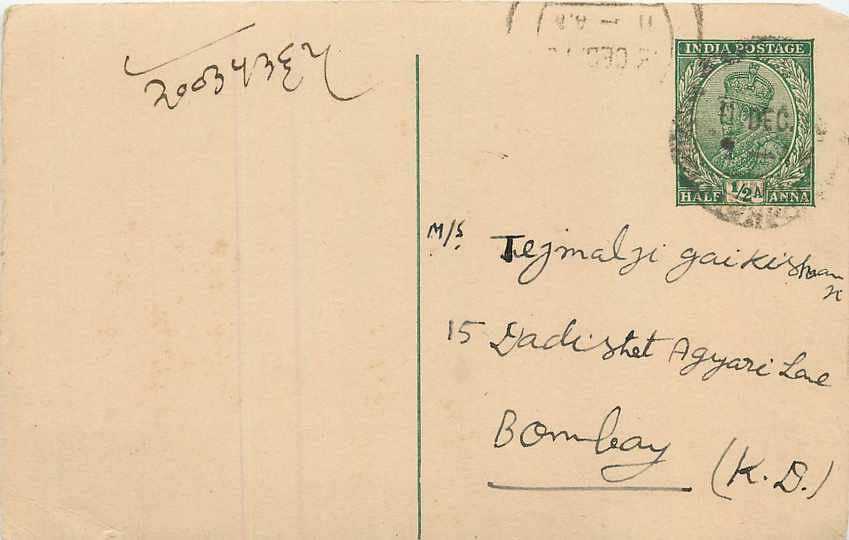 INDIA POSTAGE
11 DEC.
HALF ½A ANNA
M/S. Tejmalji gaikishan
ji
15 Dadishet Agyari Lane
Bombay
(K.D.)